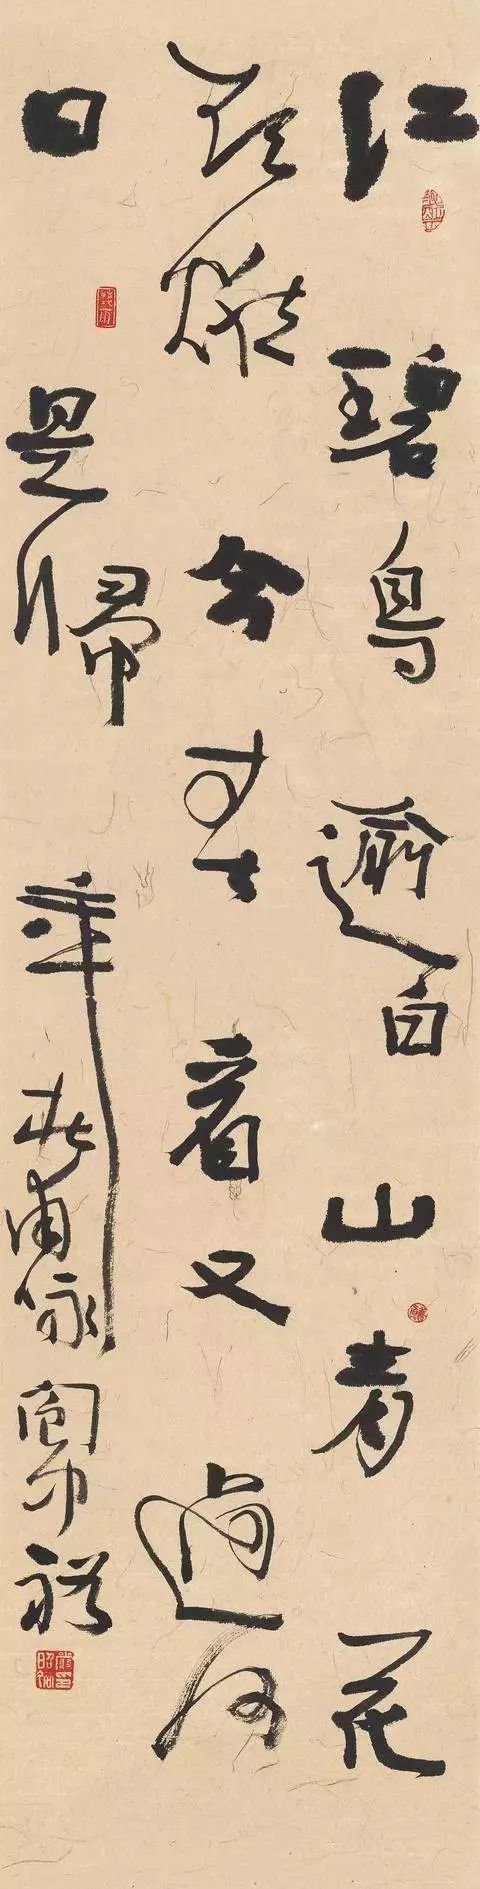 江碧鳥逾白山青花
欲燃今春看又過何
日是歸年杜甫